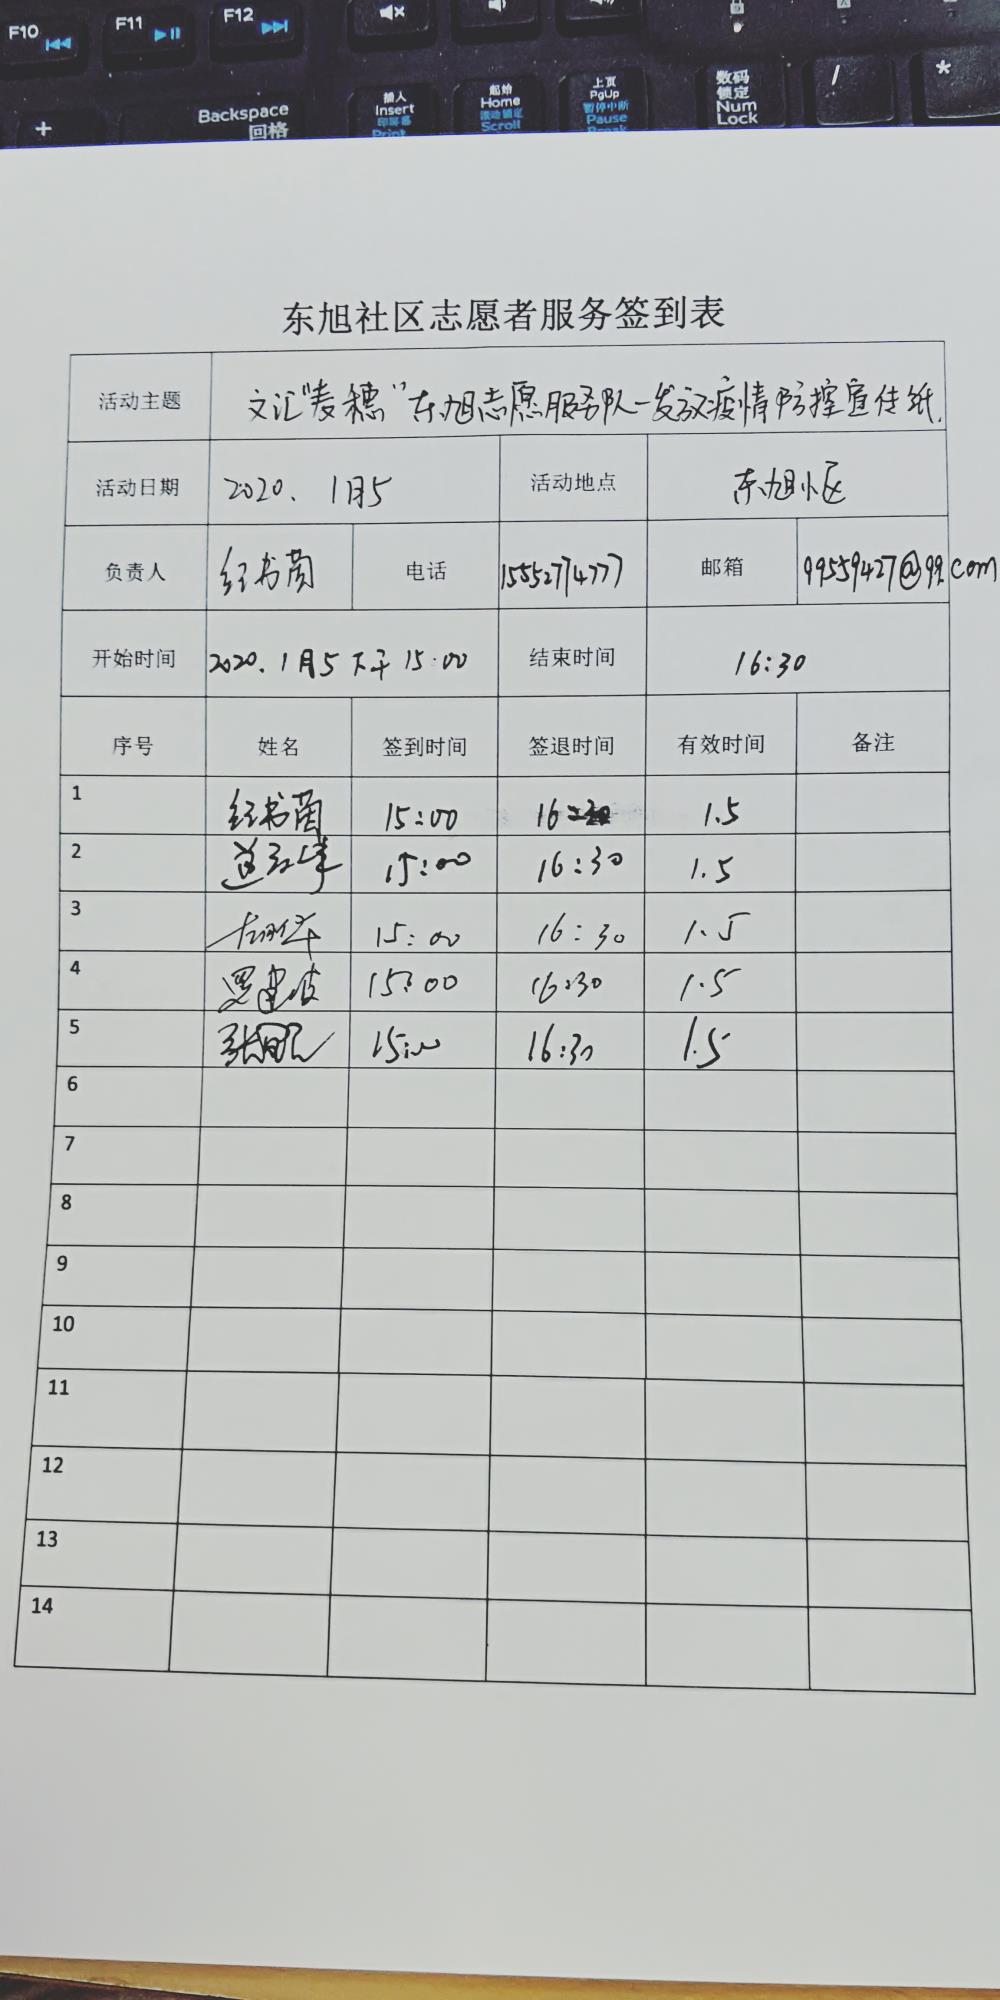 F10 F11 F12
+ Backspace 回格 插入 Insert 印屏幕 Print 起始 Home 滚动锁定 Scroll 上页 PgUp 暂停中断 Pause Break 数码锁定 Num Lock / *
东旭社区志愿者服务签到表
活动主题 文汇"麦穗"东旭志愿服务队一发放疫情防控宣传纸.
活动日期 2020. 1月5 活动地点 东旭小区
负责人 书 电话 15552774777 邮箱 99559427@99.com
开始时间 2020.1月5下午15:00 结束时间 16:30
序号 姓名 签到时间 签退时间 有效时间 备注
1 书 15:00 16:30 1.5
2 15:00 16:30 1.5
3 15:00 16:30 1.5
4 15:00 16:30 1.5
5 张 15:00 16:30 1.5
6
7
8
9
10
11
12
13
14